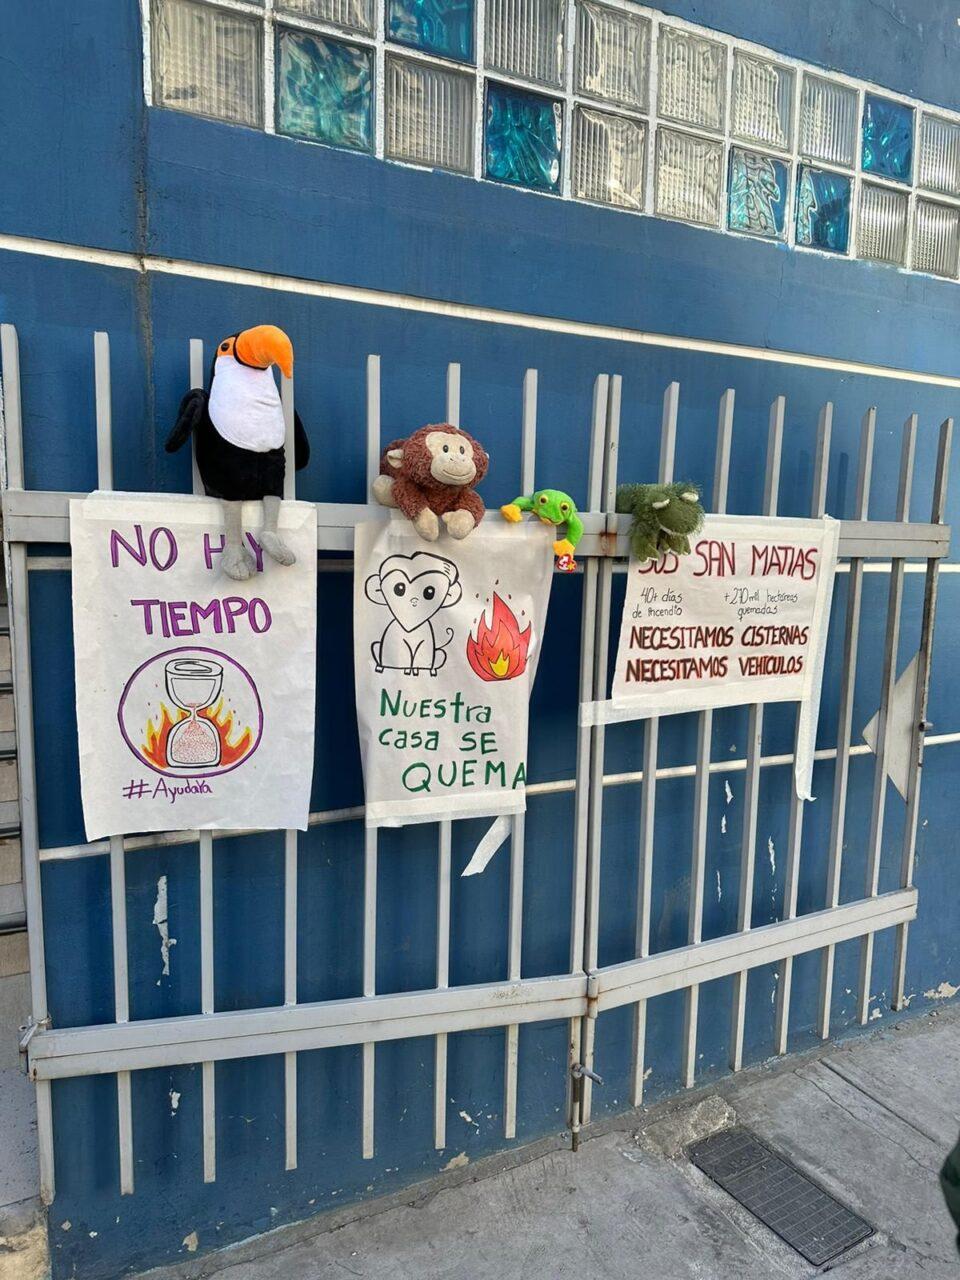 NO HAY
TIEMPO
#AyudaYa
Nuestra
casa SE
QUEMA
SOS SAN MATIAS
40+ días
de incendio
+270 mil hectáreas
quemadas
NECESITAMOS CISTERNAS
NECESITAMOS VEHÍCULOS